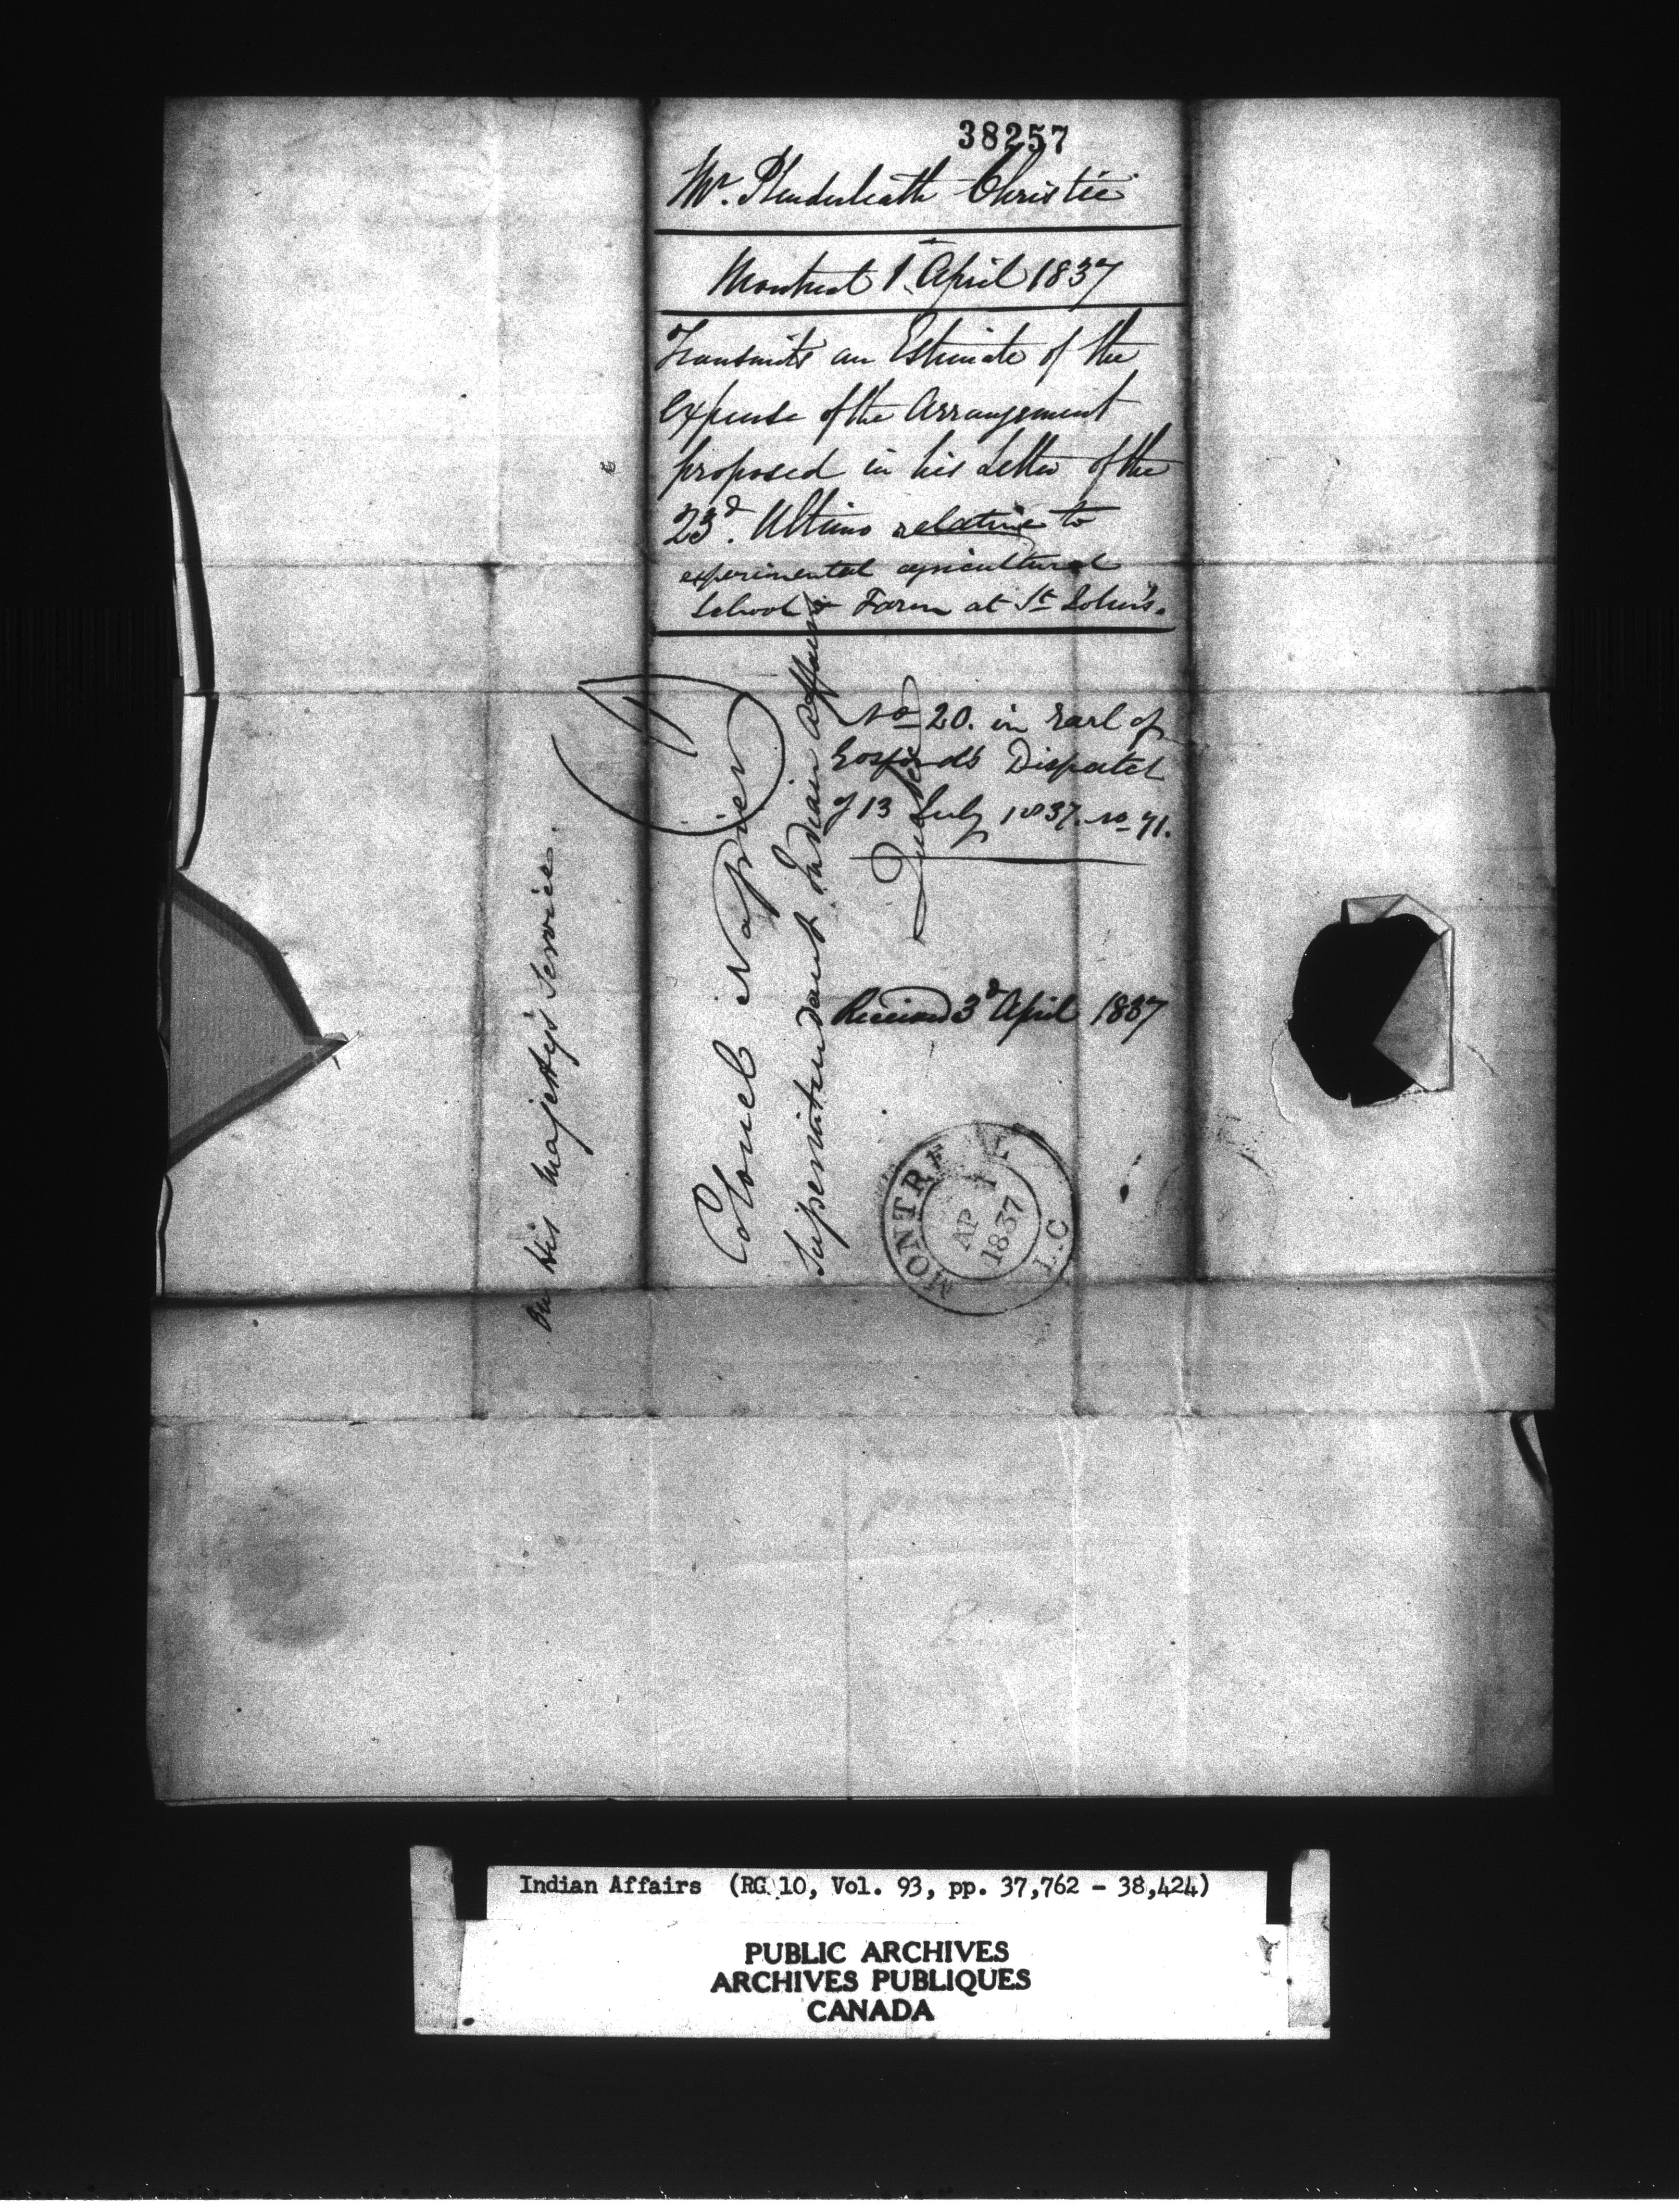 38257
Mr. Plenderleath Christie
Montreal 1st April 1837
Transmits an Estimate of the
expense of the Arrangement
proposed in his Letter of the
23d. Ultimo relative to
experimental agricultural
School & Farm at St John's.
No 20. in Earl of
Gosford's Dispatch
of 13 July 1837. No 71.
Received 3d April 1837
On His Majesty's Service.
Colonel Napier
Superintendant Indian Affairs
Quebec
MONTREAL
AP 1
1837
L.C
Indian Affairs (RG 10, Vol. 93, pp. 37,762 - 38,424)
PUBLIC ARCHIVES
ARCHIVES PUBLIQUES
CANADA